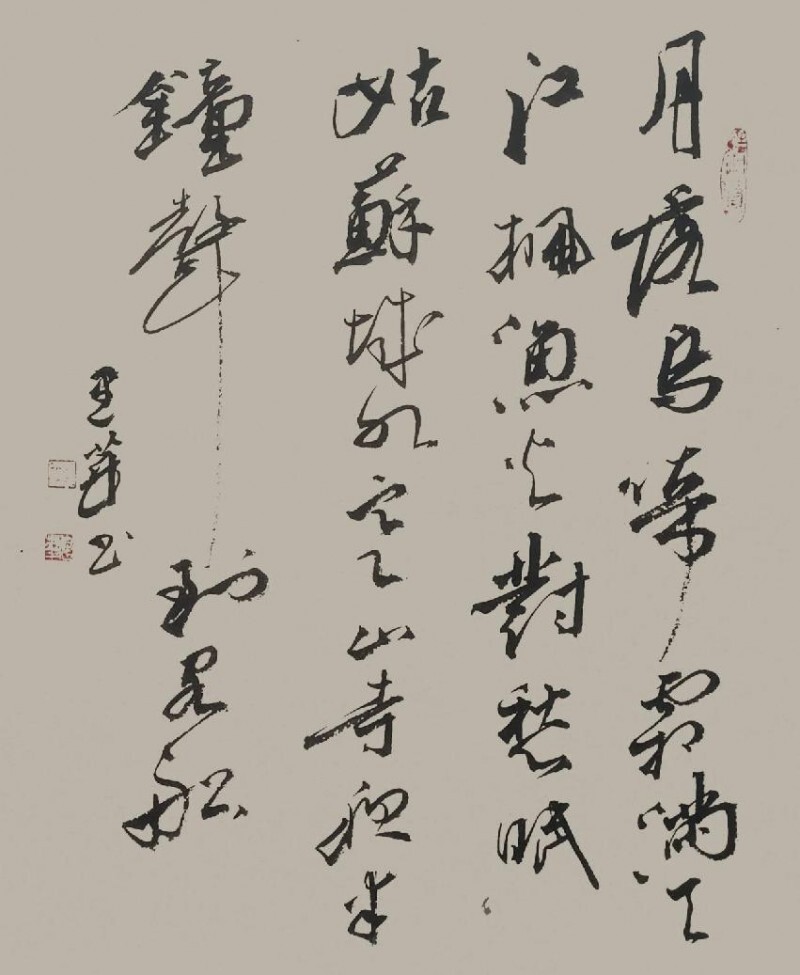 月落烏啼霜滿天
江楓漁火對愁眠
姑蘇城外寒山寺夜半
鐘聲到客船
書